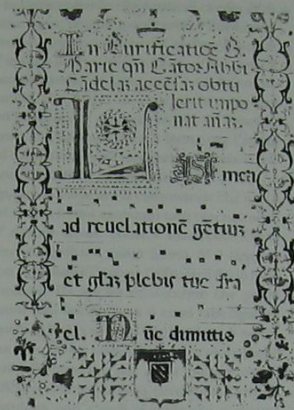 In Purificatiõe S.
Marie qñ Cãtor Abbi
Cãdelas accẽsas obtu
lerit impo
nat añas.
L umen
ad reuelationẽ gẽtiuz
et glãz plebis tue isra
el. Nũc dimittis